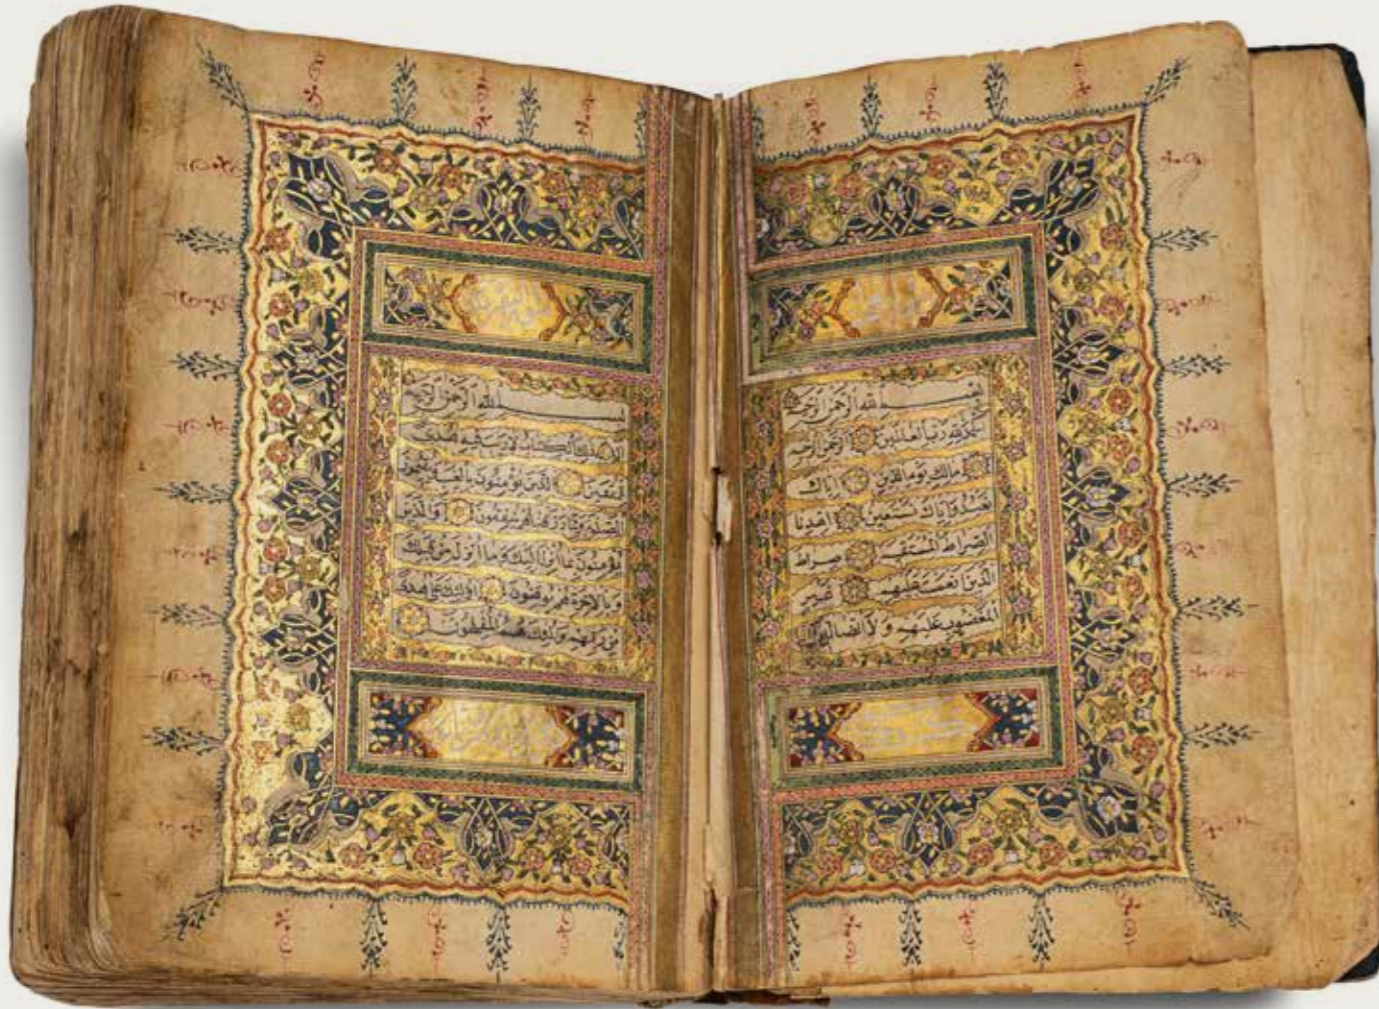 بسم الله الرحمن الرحيم
الحمد لله رب العالمين الرحمن الرحيم
مالك يوم الدين اياك
نعبد واياك نستعين اهدنا
الصراط المستقيم صراط
الذين انعمت عليهم غير
المغضوب عليهم ولا الضالين
بسم الله الرحمن الرحيم
الم ذلك الكتاب لا ريب فيه هدى
للمتقين الذين يؤمنون بالغيب ويقيمون
الصلوة ومما رزقناهم ينفقون والذين
يؤمنون بما انزل اليك وما انزل من قبلك
وبالاخرة هم يوقنون اولئك على هدى
من ربهم واولئك هم المفلحون